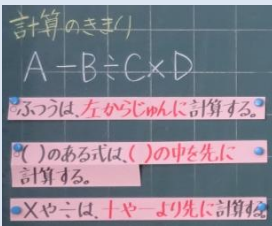 計算のきまり
A－B÷C×D
ふつうは、左からじゅんに計算する。
( )のある式は、( )の中を先に
計算する。
×や÷は、＋や－より先に計算する